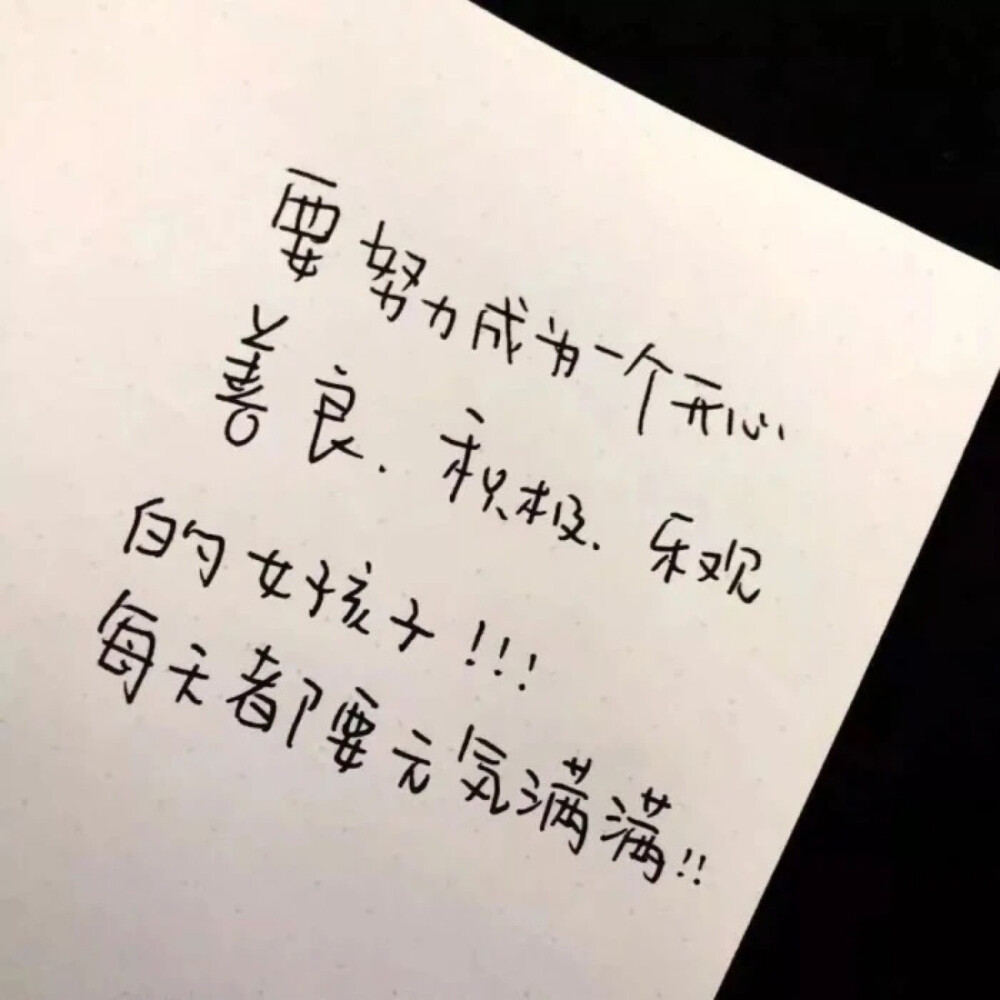 要努力成为一个开心
善良.积极.乐观
的女孩子!!!
每天都要元气满满!!